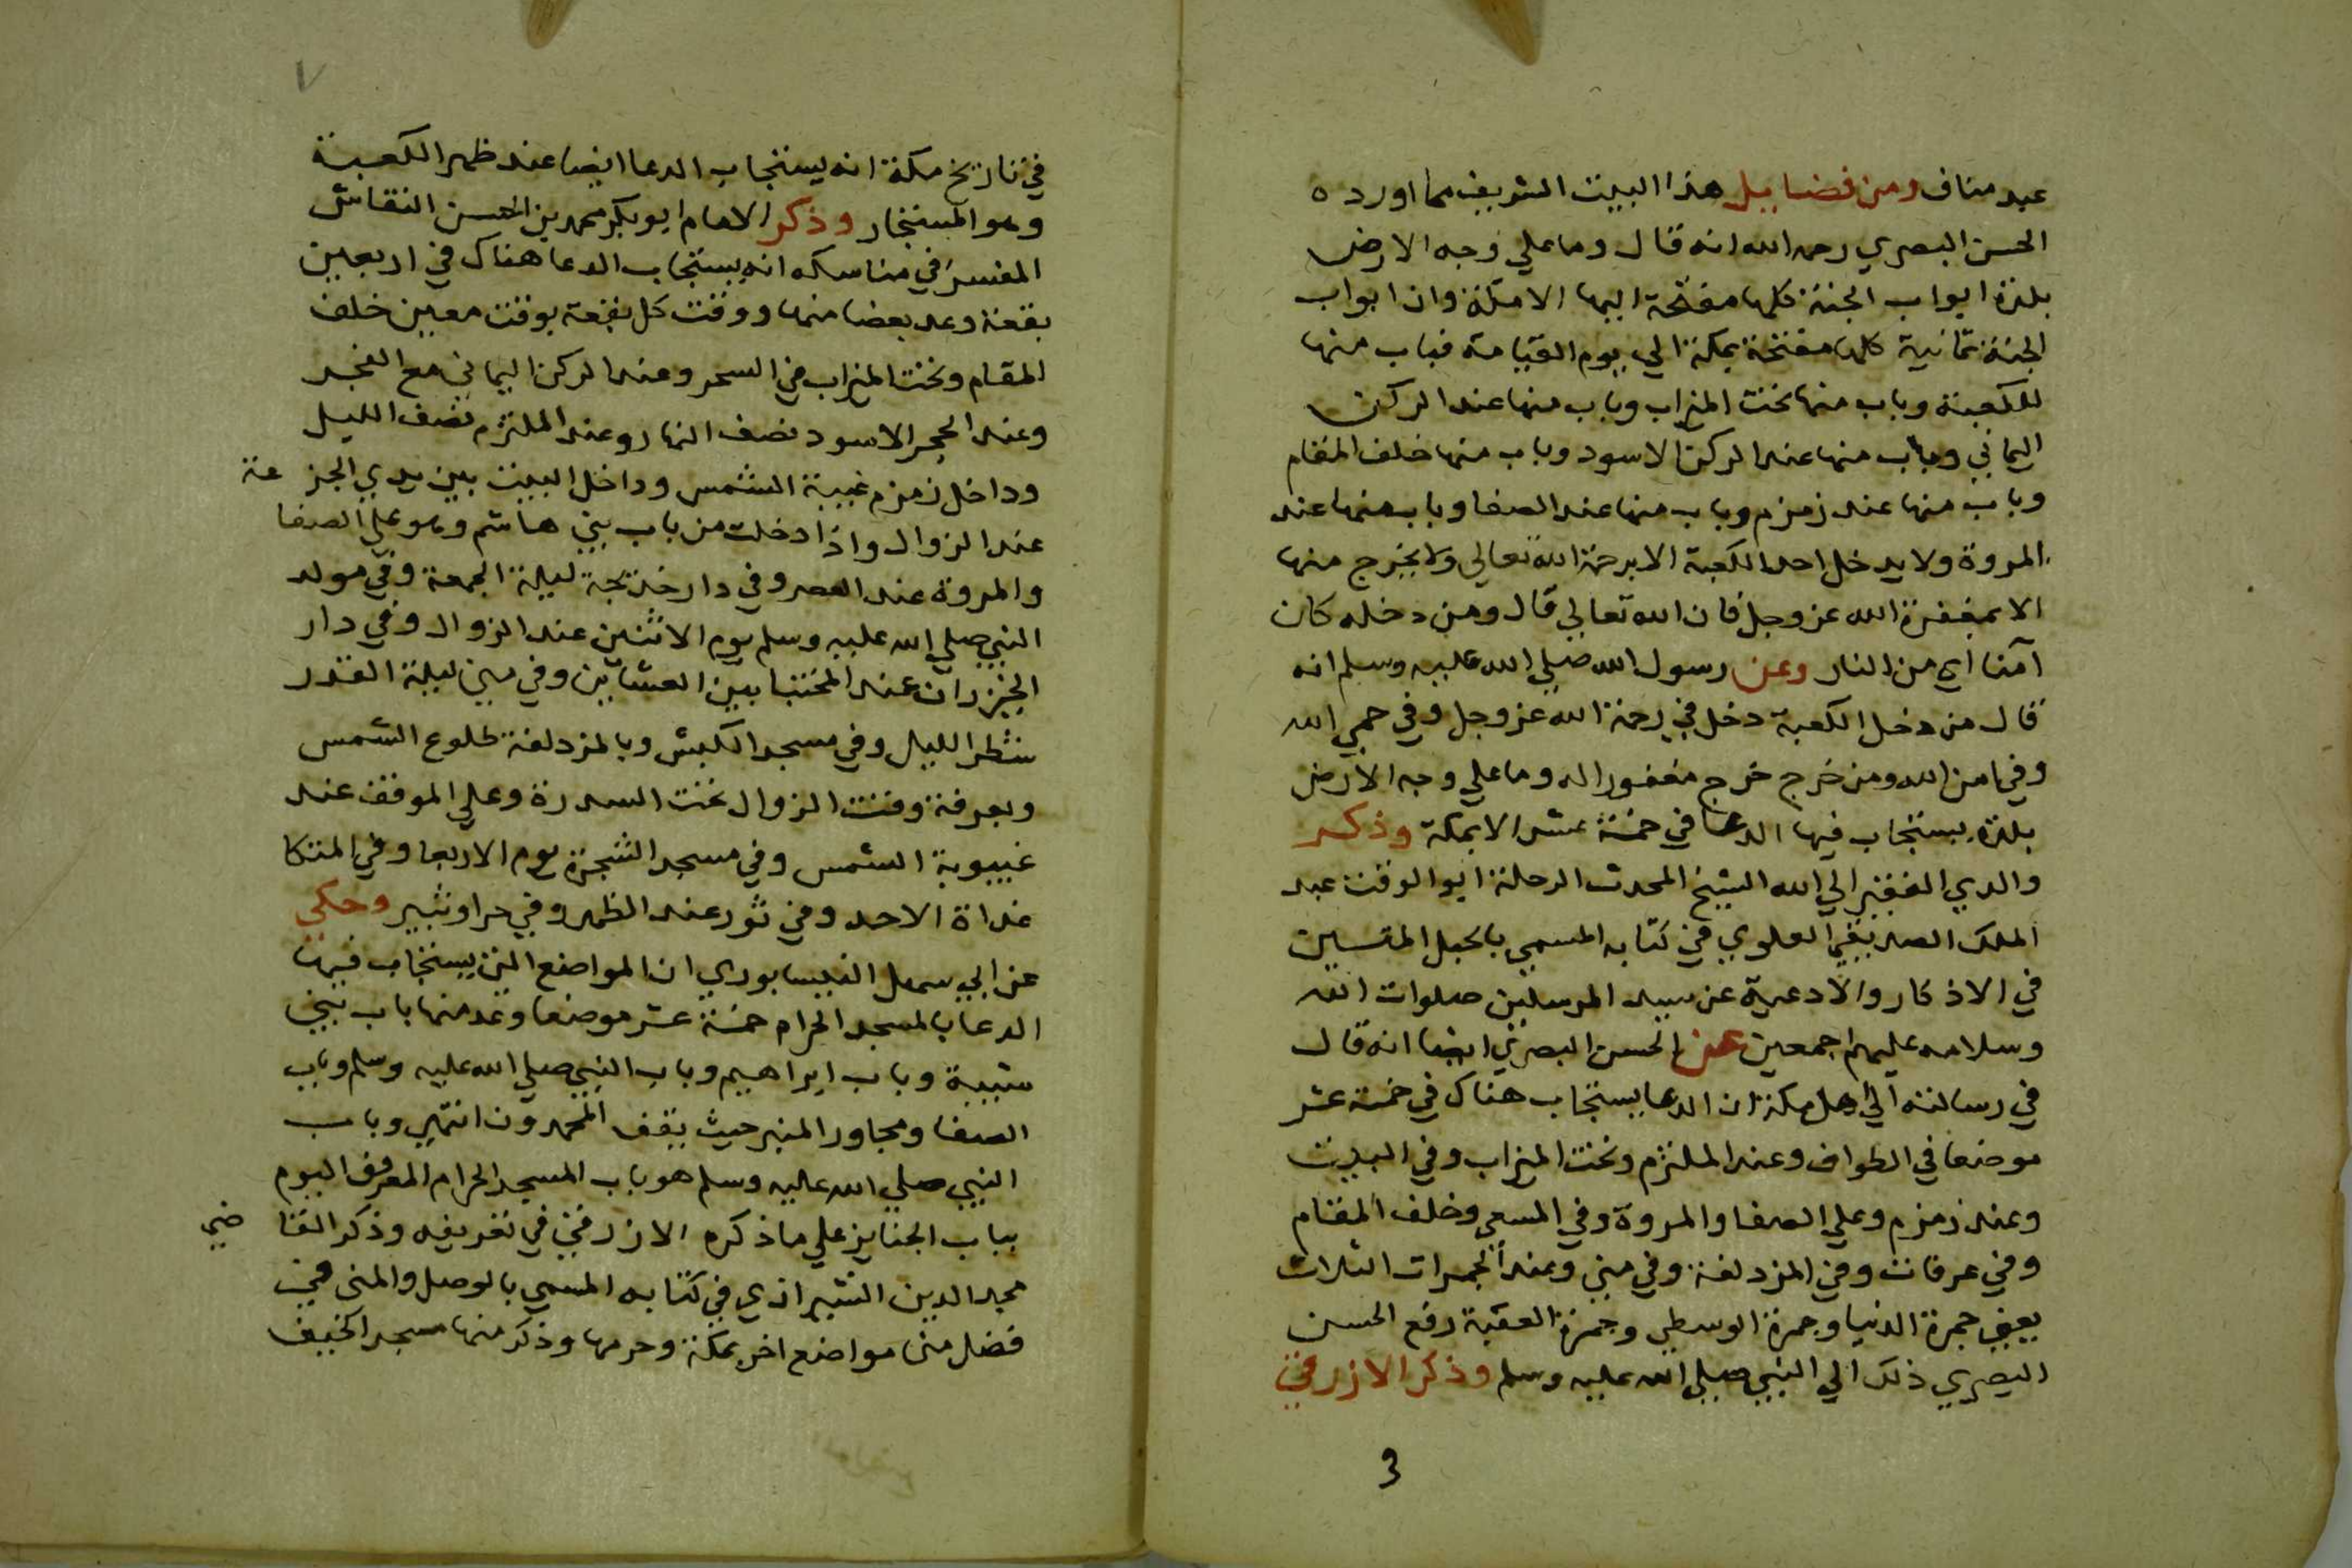 عبد مناف ومن فضايل هذا البيت الشريف مما اورده
الحسن البصري رحمه الله انه قال وما علي وجه الارض
بلدة ابواب الجنة كلها مفتحة اليها الا مكة وان ابواب
الجنة ثمانية كلها مفتحة بمكة الي يوم القيامة فباب منها
للكعبة وباب منها تحت الميزاب وباب منها عند الركن
اليماني وباب منها عند الركن الاسود وباب منها خلف المقام
وباب منها عند زمزم وباب منها عند الصفا وباب منها عند
المروة ولا يدخل احد الكعبة الا برحمة الله تعالي ولا يخرج منها
الا بمغفرة الله عز وجل فان الله تعالي قال ومن دخله كان
آمنا اي من النار وعن رسول الله صلي الله عليه وسلم انه
قال من دخل الكعبة دخل في رحمة الله عز وجل وفي حمي الله
وفي امن الله ومن خرج خرج مغفورا له وما علي وجه الارض
بلدة يستجاب فيها الدعا في خمسة عشر الا بمكة وذكر
والدي الفقير الي الله الشيخ المحدث الرحلة ابو الوقت عبد
الملك الصديقي العلوي في كتابه المسمي بالحبل المتين
في الاذكار والادعية عن سيد المرسلين صلوات الله
وسلامه عليهم اجمعين عن الحسن البصري ايضا انه قال
في رسالته الي اهل مكة ان الدعا يستجاب هناك في خمسة عشر
موضعا في الطواف وعند الملتزم وتحت الميزاب وفي البيت
وعند زمزم وعلي الصفا والمروة وفي المسعي وخلف المقام
وفي عرفات وفي المزدلفة وفي مني وعند الجمرات الثلاث
يعني جمرة الدنيا وجمرة الوسطي وجمرة العقبة رفع الحسن
البصري ذلك الي النبي صلي الله عليه وسلم وذكر الازرقي
3
٧
في تاريخ مكة انه يستجاب الدعا ايضا عند ظهر الكعبة
وهو المستجار وذكر الامام ابو بكر محمد بن الحسن النقاش
المفسر في مناسكه انه يستجاب الدعا هناك في اربعين
بقعة وعد بعضا منها ووقت كل بقعة بوقت معين خلف
المقام وتحت الميزاب في السحر وعند الركن اليماني مع الفجر
وعند الحجر الاسود نصف النهار وعند الملتزم نصف الليل
وداخل زمزم غيبة الشمس وداخل البيت بين يدي الجزعة
عند الزوال واذا دخلت من باب بني هاشم وهو علي الصفا
والمروة عند العصر وفي دار خديجة ليلة الجمعة وفي مولد
النبي صلي الله عليه وسلم يوم الاثنين عند الزوال وفي دار
الخيزران عند المختبا بين العشايين وفي مني ليلة القدر
شطر الليل وفي مسجد الكبش وبالمزدلفة طلوع الشمس
وبعرفة وقت الزوال تحت السدرة وعلي الموقف عند
غيبوبة الشمس وفي مسجد الشجرة يوم الاربعا وفي المتكا
غداة الاحد وفي ثور عند الظهر وفي حرا وثبير وحكي
عن ابي سهل النيسابوري ان المواضع التي يستجاب فيها
الدعا بالمسجد الحرام خمسة عشر موضعا وعد منها باب بني
شيبة وباب ابراهيم وباب النبي صلي الله عليه وسلم وباب
الصفا ومجاور المنبر حيث يقف المحمدون انتهي وباب
النبي صلي الله عليه وسلم هو باب المسجد الحرام المعروف اليوم
بباب الجنايز علي ما ذكره الازرقي في تعريفه وذكر القاضي
مجد الدين الشيرازي في كتابه المسمي بالوصل والمنى في
فضل منى مواضع اخر بمكة وحرمها وذكر منها مسجد الخيف